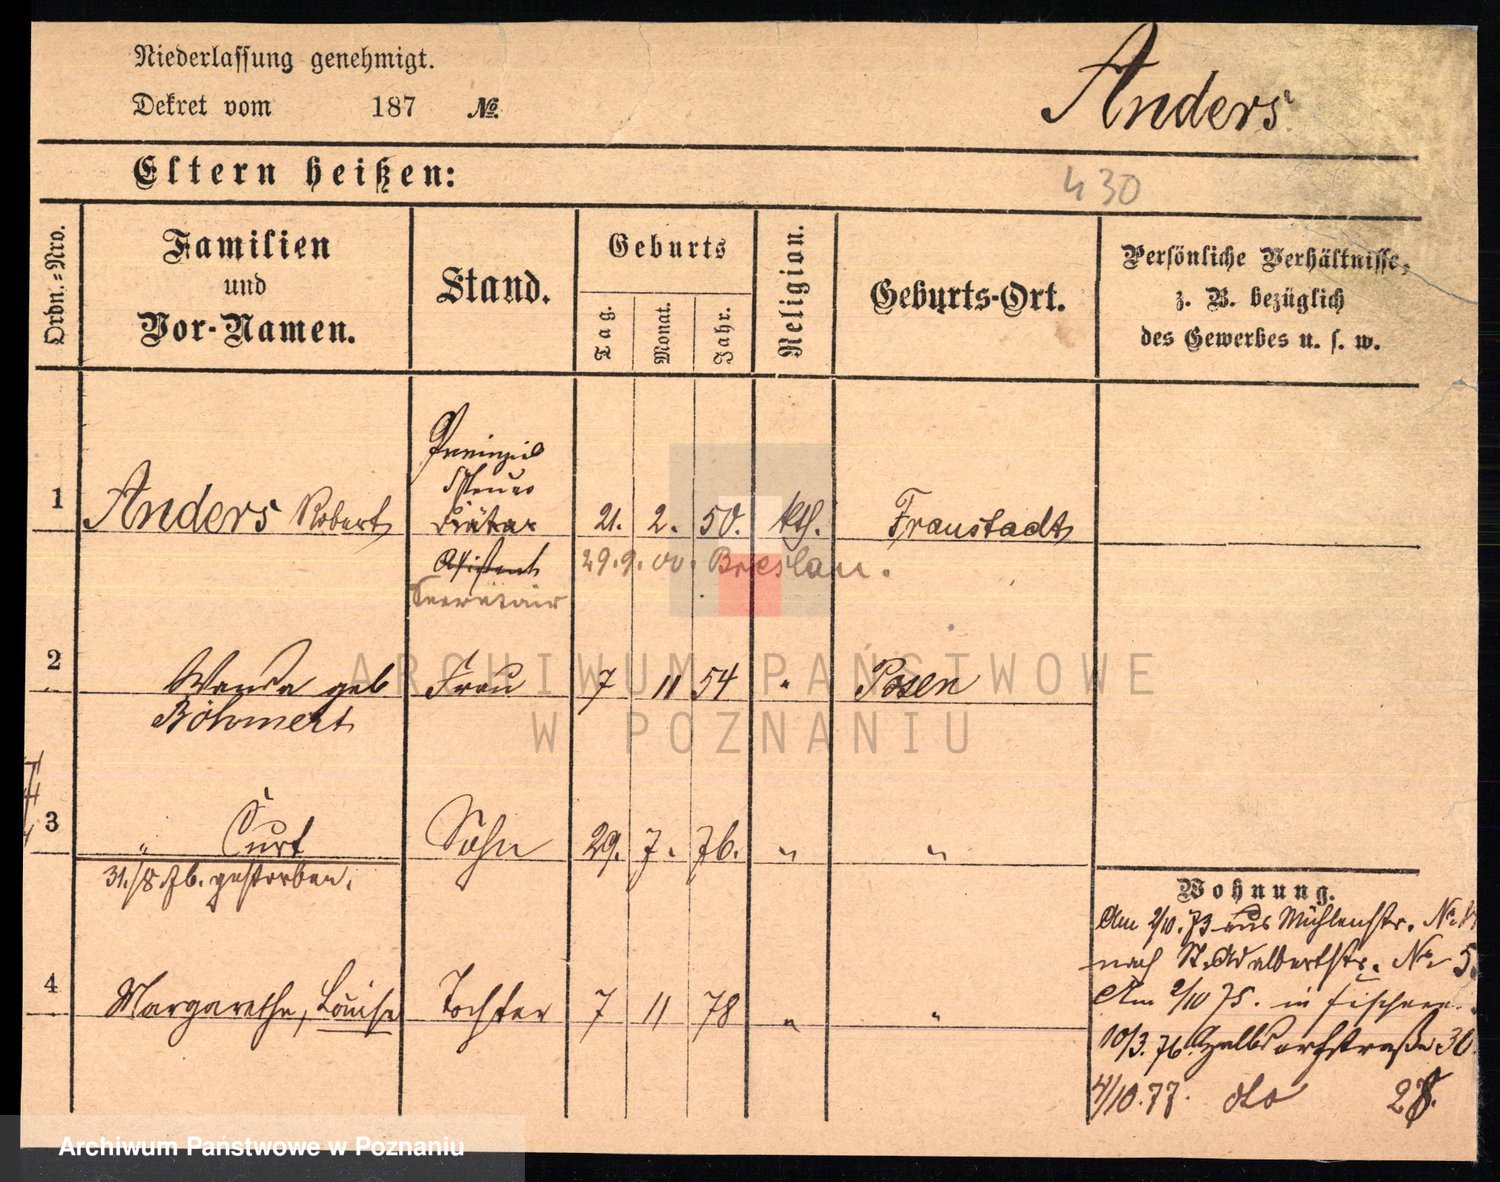 Niederlassung genehmigt.
Dekret vom 187 №.
Anders
Eltern heißen:
430
Ordn.-Nro.
Familien
und
Vor-Namen.
Stand.
Geburts
Tag.
Monat.
Jahr.
Religion.
Geburts-Ort.
Persönliche Verhältnisse,
z. B. bezüglich
des Gewerbes u. s. w.
Provinzial
Steuer
1 Anders Robert Diätar 21. 2. 50. kth. Fraustadt
Assistent 29.9.00. Breslau.
Secretair
2 Wanda geb Frau 7 11 54 " Posen
Böhmert
3 " Curt Sohn 29. 7. 76. " "
31./8. 76. gestorben.
4 Margarethe, Louise Tochter 7 11 78 " "
Wohnung.
Am 2/10. 73 aus Mühlenstr. No
nach St. Adalbertstr. No 5
Am 2/10 75. in Fischerei
10/3. 76. Halbdorfstraße 30.
4/10. 77. dto 28.
ARCHIWUM PAŃSTWOWE
W POZNANIU
Archiwum Państwowe w Poznaniu